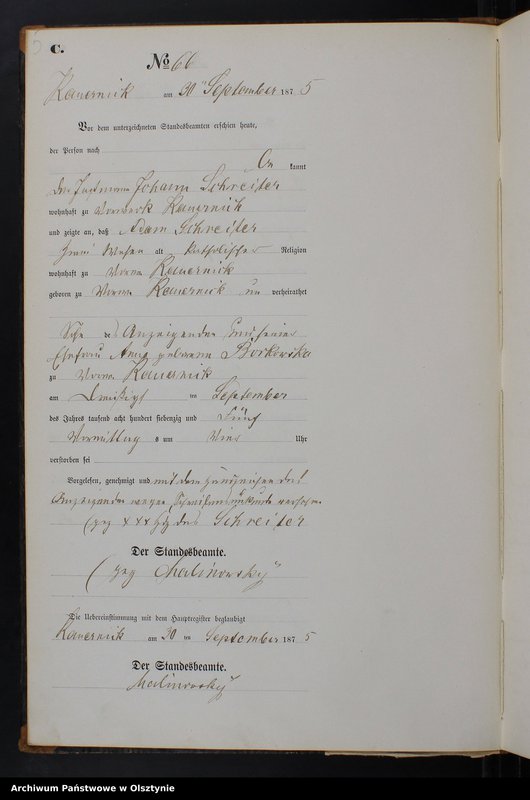 C.
No 66
Kauernick am 30 September 1875
Vor dem unterzeichneten Standesbeamten erschien heute,
der Person nach
kannt
der Johann Schreiter
wohnhaft zu Vorwerk Kauernick
und zeigte an, daß Adam Schreiter
Wochen alt katholischer Religion
wohnhaft zu Vorw. Kauernick
geboren zu Vorw. Kauernick un verheirathet
Sohn des Anzeigenden und seiner
Ehefrau Anna geborene Borkowska
zu Vorw. Kauernick
am September
des Jahres tausend acht hundert siebenzig und Fünf
Vormittag s um Vier Uhr
verstorben sei
Vorgelesen, genehmigt und mit dem Handzeichen des
Anzeigenden wegen versehen
(gez XXX Hdz des Schreiter
Der Standesbeamte.
(gez Malinowsky
Die Uebereinstimmung mit dem Hauptregister beglaubigt
Kauernick am 30 ten September 1875
Der Standesbeamte.
Malinowsky
Archiwum Państwowe w Olsztynie